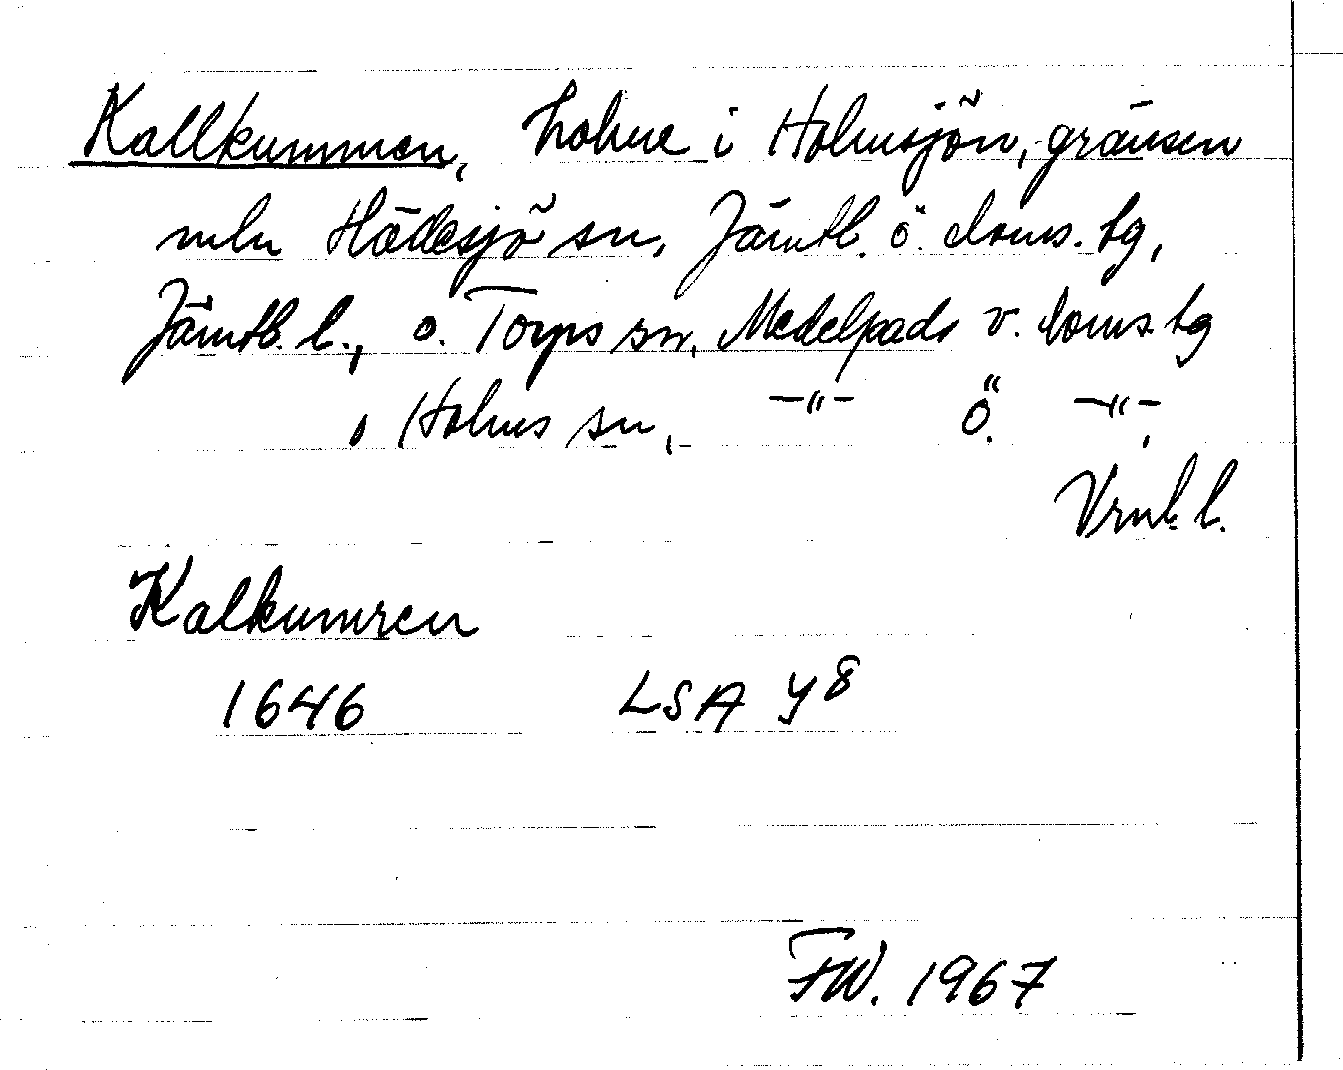 Kallkummen, holme i Holmsjön, gränsen
mln Hällesjö sn, Jämtl. ö. doms. tg,
Jämtl. l., o. Torps sn, Medelpads v. doms. tg
o Holms sn, –"– Ö. –"–,
Vrnl. l.
Kalkumren
1646 LSA Y8
FW. 1967